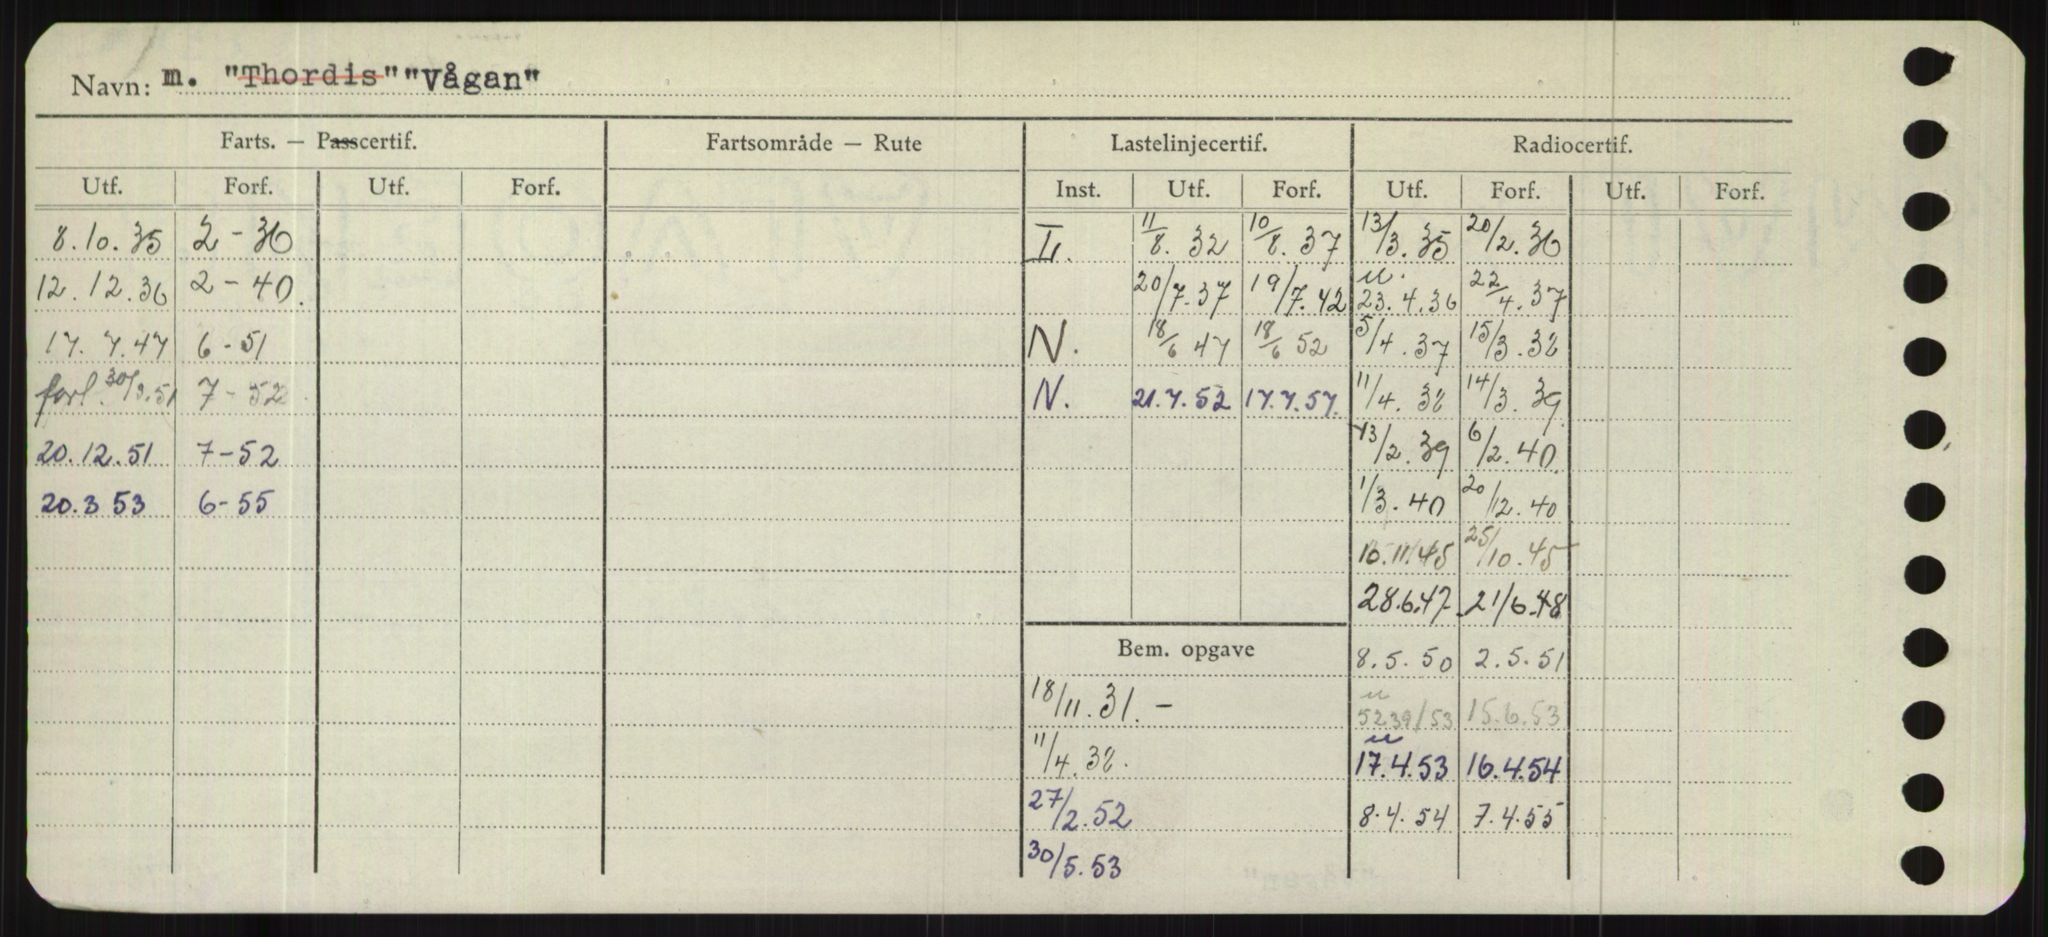 Navn: m. "Thordis" "Vågan"
Farts. — Passcertif. Fartsområde — Rute Lastelinjecertif. Radiocertif.
Utf. Forf. Utf. Forf. Inst. Utf. Forf. Utf. Forf. Utf. Forf.
8.10.35 2-36 I. 11/8.32 10/8.37 13/3.35 20/2.36
12.12.36 2-40. 20/7.37 19/7.42 u. 23.4.36 22/4.37
17.7.47 6-51 N. 18/6 47 18/6 52 5/4.37 15/3.38
forl. 30/3.51 7-52 N. 21.7.52 17.7.57. 11/4.38 14/3.39
20.12.51 7-52 13/2.39 6/2.40
20.3 53 6-55 1/3.40 20/12.40
10.11.45 25/10.45
28.6.47 21/6.48
Bem. opgave 8.5.50 2.5.51
18/11.31.- u 5239/53 15.6.53
11/4.38. u 17.4.53 16.4.54
27/2.52 8.4.54 7.4.55
30/5.53